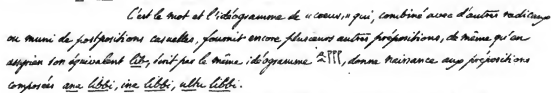 C'est le mot et l'idéogramme de «coeur,» qui, combiné avec d'autres radicaux
ou muni de postpositions casuelles, fournit encore plusieurs autres prépositions, de même qu'en
assyrien son équivalent lib, écrit par le même idéogramme, donne naissance aux prépositions
composées ana libbi, ina libbi, ultu libbi.